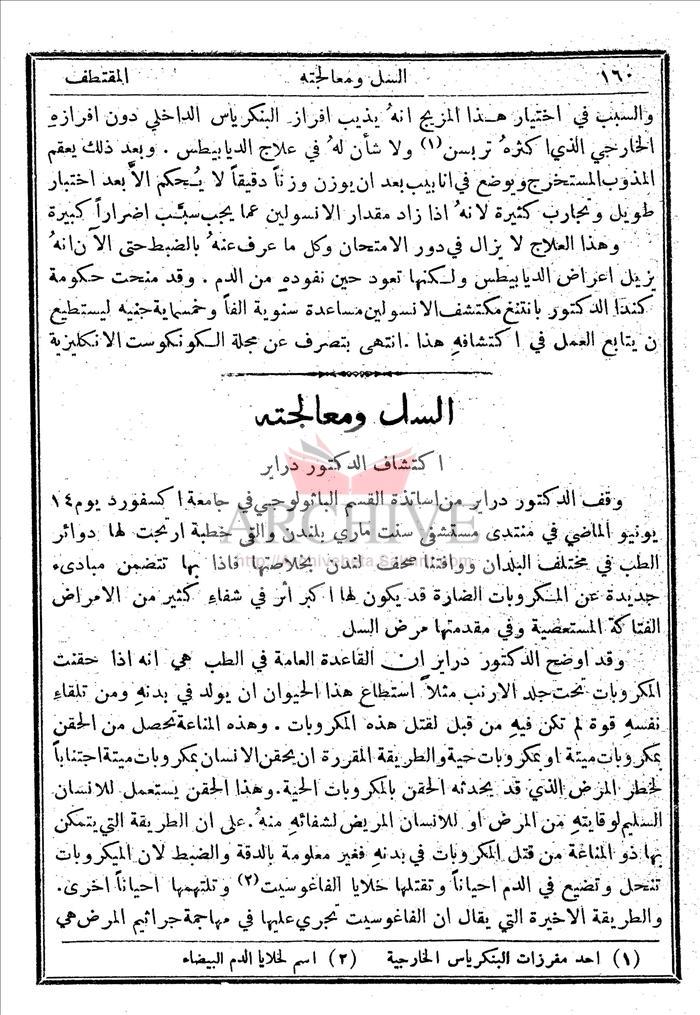 ١٦٠ السل ومعالجته المقتطف
والسبب في اختيار هذا المزيج انهُ يذيب افراز البنكرياس الداخلي دون افرازهِ
الخارجي الذي اكثرهُ تربسن(١) ولا شأن لهُ في علاج الديابيطس . وبعد ذلك يعقم
المذوب المستخرج ويوضع في انابيب بعد ان يوزن وزناً دقيقاً لا يُحكم الاَّ بعد اختبار
طويل وتجارب كثيرة لانهُ اذا زاد مقدار الانسولين عما يجب سبَّب اضراراً كبيرة
وهذا العلاج لا يزال في دور الامتحان وكل ما عرف عنهُ بالضبط حتى الآن انهُ
يزيل اعراض الديابيطس ولكنها تعود حين نفوده من الدم . وقد منحت حكومة
كندا الدكتور بانتنغ مكتشف الانسولين مساعدة سنوية الفاً وخمسماية جنيه ليستطيع
ن يتابع العمل في اكتشافهِ هذا . انتهى بتصرف عن مجلة الكونكوست الانكليزية
السل ومعالجته
اكتشاف الدكتور دراير
وقف الدكتور دراير من اساتذة القسم الباثولوجي في جامعة اكسفورد يوم ١٤
يونيو الماضي في منتدى مستشفى سنت ماري بلندن والقى خطبة ارتجت لها دوائر
الطب في مختلف البلدان ووافتنا صحف لندن بخلاصتها فاذا بها تتضمن مبادىء
جديدة عن المكروبات الضارة قد يكون لها اكبر أثر في شفاءِ كثير من الامراض
الفتاكة المستعصية وفي مقدمتها مرض السل
وقد اوضح الدكتور دراير ان القاعدة العامة في الطب هي انه اذا حقنت
المكروبات تحت جلد الارنب مثلاً استطاع هذا الحيوان ان يولد في بدنهِ ومن تلقاءِ
نفسهِ قوة لم تكن فيهِ من قبل لقتل هذه المكروبات . وهذه المناعة تحصل من الحقن
بمكروبات ميتة او بمكروبات حية والطريقة المقررة ان يحقن الانسان بمكروبات ميتة اجتناباً
لخطر المرض الذي قد يحدثه الحقن بالمكروبات الحية . وهذا الحقن يستعمل للانسان
السليم لوقايتهِ من المرض او للانسان المريض لشفائهِ منهُ . على ان الطريقة التي يتمكن
بها ذو المناعة من قتل المكروبات في بدنهِ فغير معلومة بالدقة والضبط لان الميكروبات
تنحل وتضيع في الدم احياناً وتقتلها خلايا الفاغوسيت(٢) وتلتهمها احياناً اخرى .
والطريقة الاخيرة التي يقال ان الفاغوسيت تجري عليها في مهاجمة جراثيم المرض هي
(١) احد مفرزات البنكرياس الخارجية (٢) اسم لخلايا الدم البيضاء
ARCHIVE